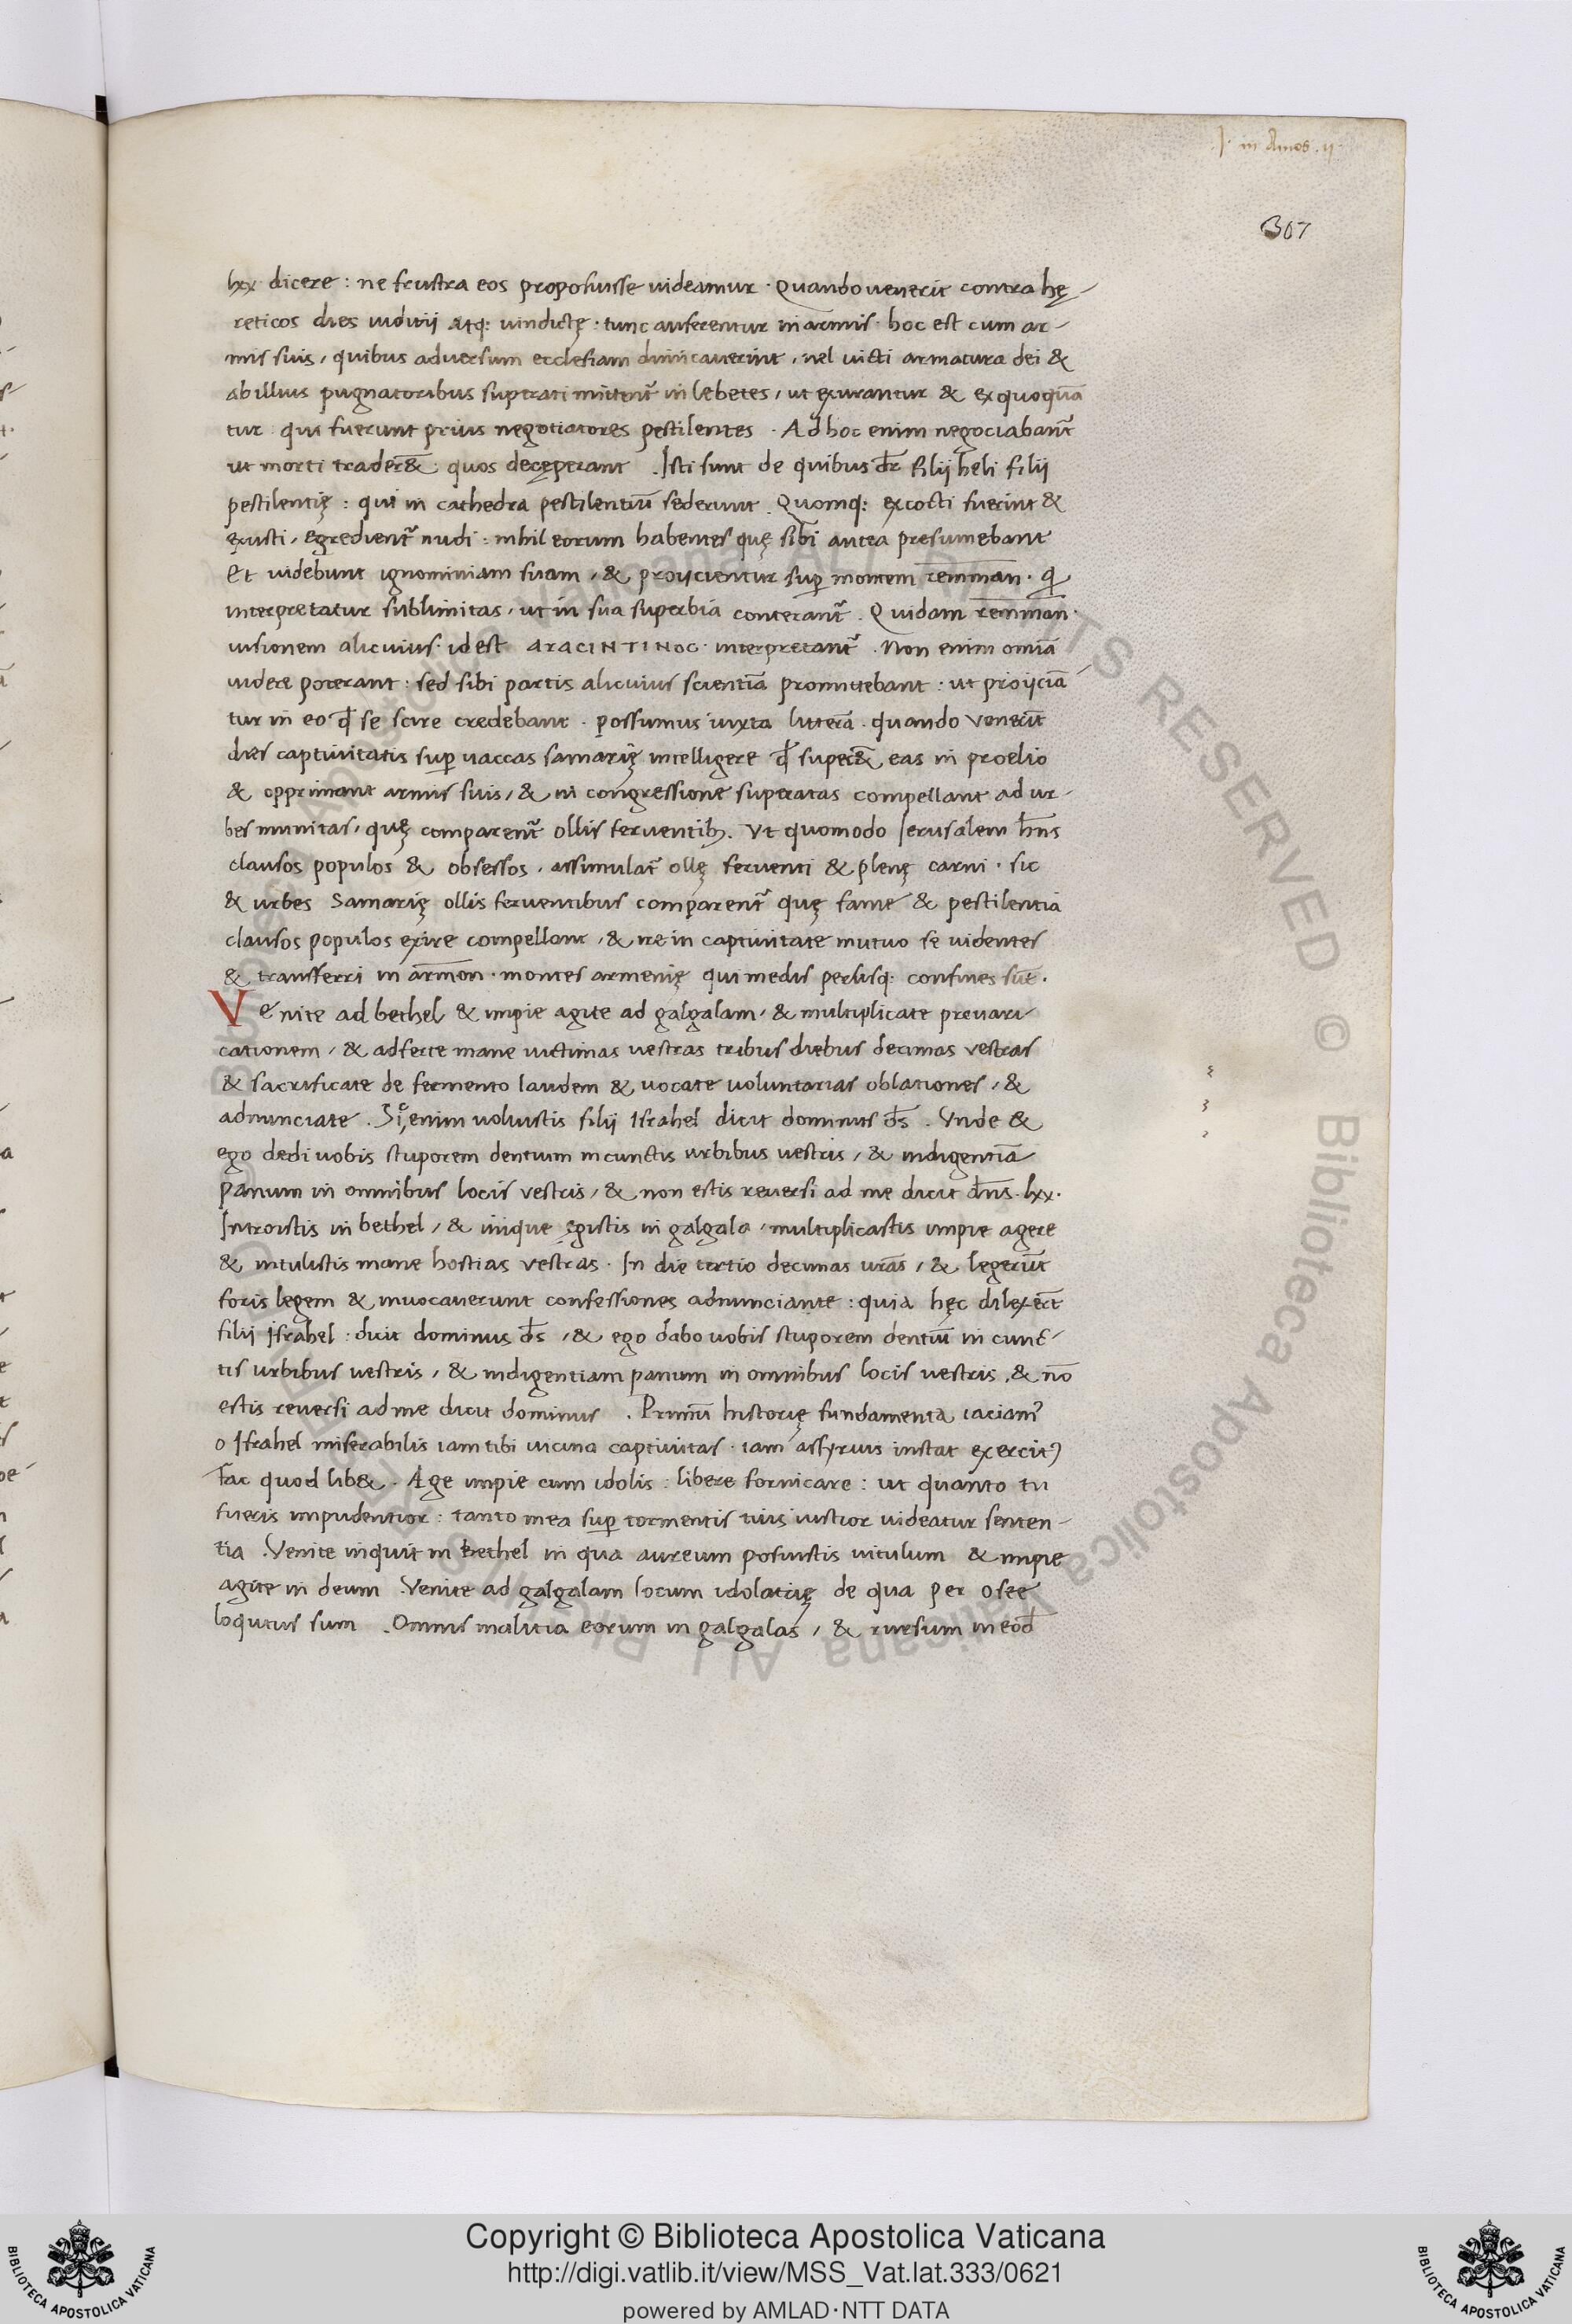 J. in Amos . ij
307
lxx dicere : ne frustra eos proposuisse uideamur . Quando uenerit contra hę-
reticos dies iuditij atq: uindictę . tunc auferentur in armis . hoc est cum ar-
mis suis, quibus aduersum ecclesiam dimicauerint, uel uicti armatura dei &
ab illius pugnatoribus suptrati mittent᷑ in lebetes, ut exurantur & exquoquā
tur qui fuerunt prius negotiatores pestilentes . Ad hoc enim negociabant᷑
ut morti trader&̄ quos decęperant . Isti sunt de quibus dr̄ filij heli filij
pestilentię : qui in cathedra pestilentiū sederunt . Quomq: excocti fuerint &
exusti, egredient᷑ nudi : nihil eorum habentes quę sibi antea presumebant
Et uidebunt ignominiam suam, & proijcientur sup̱ montem remman . q̱
interpretatur sublimitas, ut in sua superbia conterant᷑ . Quidam remman .
uisionem alicuius . id est ARACINTINOC . interpretant᷑ . Non enim omīa
uidere poterant : sed sibi partis alicuius scientiā promittebant : ut proijciā
tur in eo qđ se scire credebant . possumus iuxta litterā . quando venerīt
dies captiuitatis sup̱ uaccas samarię intelligere qđ super&̄ eas in proelio
& opprimant armis suis, & in congressione superatas compellant ad ur-
bes munitas, quę comparent᷑ ollis feruentib; . Vt quomodo Jerusalem hn̄s
clausos populos & obsessos, assimulat᷑ ollę feruenti & plenę carni . sic
& urbes Samarię ollis feruentibus comparent᷑ quę fame & pestilentia
clausos populos exire compellant, & ire in captiuitate mutuo se uidentes
& transferri in armon . montes armenię qui medis persisq: confines sūt .
Venite ad bethel & impie agite ad galgalam, & multiplicate preuari-
cationem, & adferte mane uictimas uestras tribus diebus decimas vestras
& sacrificate de fermento laudem & uocate uoluntarias oblationes, &
adnunciate . Sic enim voluistis filij Israhel dicit dominus dˉs . Vnde &
ego dedi uobis stuporem dentium in cunctis urbibus uestris, & indigentiā
panum in omnibus locis vestris, & non estis reuersi ad me dicit dn̄s . lxx .
Introistis in bethel, & iniique egistis in galgala, multiplicastis impie agere
& intulistis mane hostias vestras . In die tertio decimas ur̄as, & legerūt
foris legem & inuocauerunt confessiones adnunciante : quia hęc dilexerūt
filij Israhel : dicit dominus dˉs, & ego dabo uobis stuporem dentiū in cunc-
tis urbibus uestris, & indigentiam panum in omnibus locis uestris, & nō
estis reuersi ad me dicit dominus . Primū historię fundamenta iaciam᷑
o Israhel miserabilis iam tibi uicina captiuitas . iam assyrius instat exercitꝰ
Fac quod lib& . Age impie cum idolis : libere fornicare : ut quanto tu
fueris impudentior : tanto mea sup̱ tormentis tuis iustior uideatur senten-
tia . Venite inquit in bethel in qua aureum posuistis uitulum & impie
agite in deum . Venite ad galgalam locum idolatrię de qua per osee
loqutus sum . Omnis malitia eorum in galgalas, & rursum in eod̄
Copyright © Biblioteca Apostolica Vaticana
http://digi.vatlib.it/view/MSS_Vat.lat.333/0621
powered by AMLAD·NTT DATA